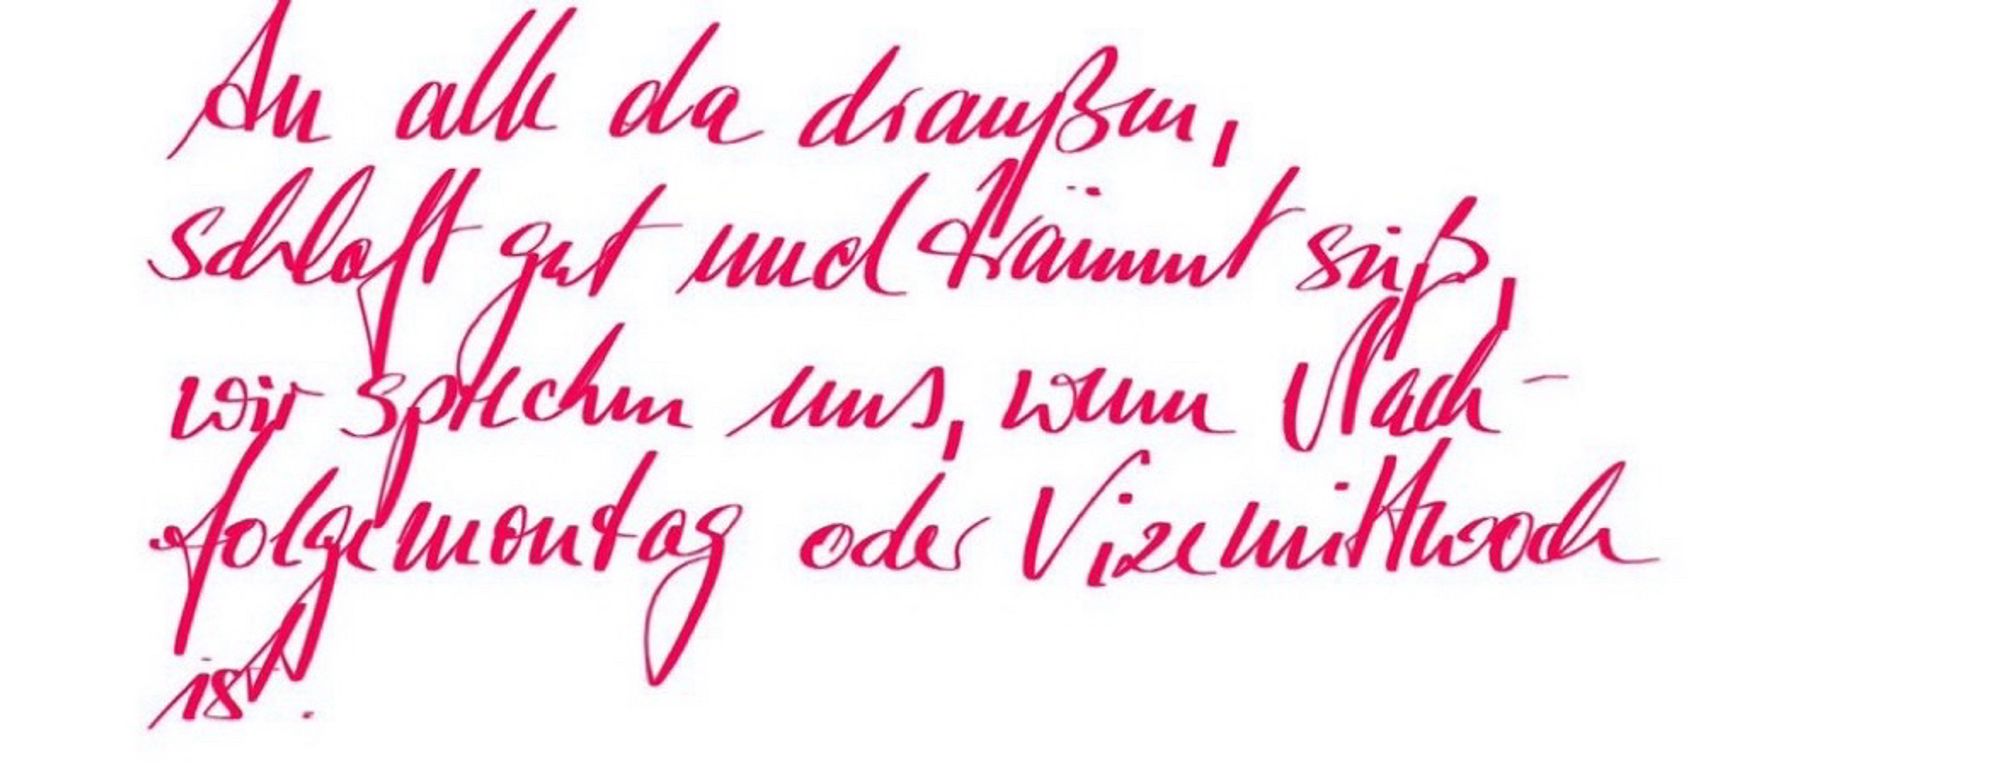 An alle da draußen,
schlaft gut und träumt süß,
wir sprechen uns, wenn Nach-
folgemontag oder Vizemittwoch
ist.